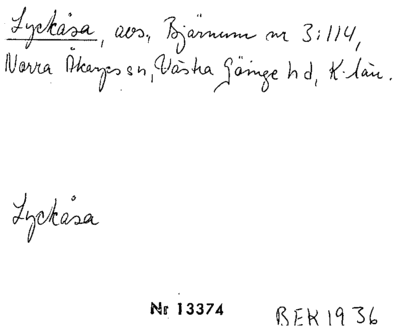 Lyckåsa, avs., Bjärnum nr 3:114,
Norra Åkarps sn, Västra Göinge hd, K. län.
Lyckåsa
Nr 13374
BEK 1936